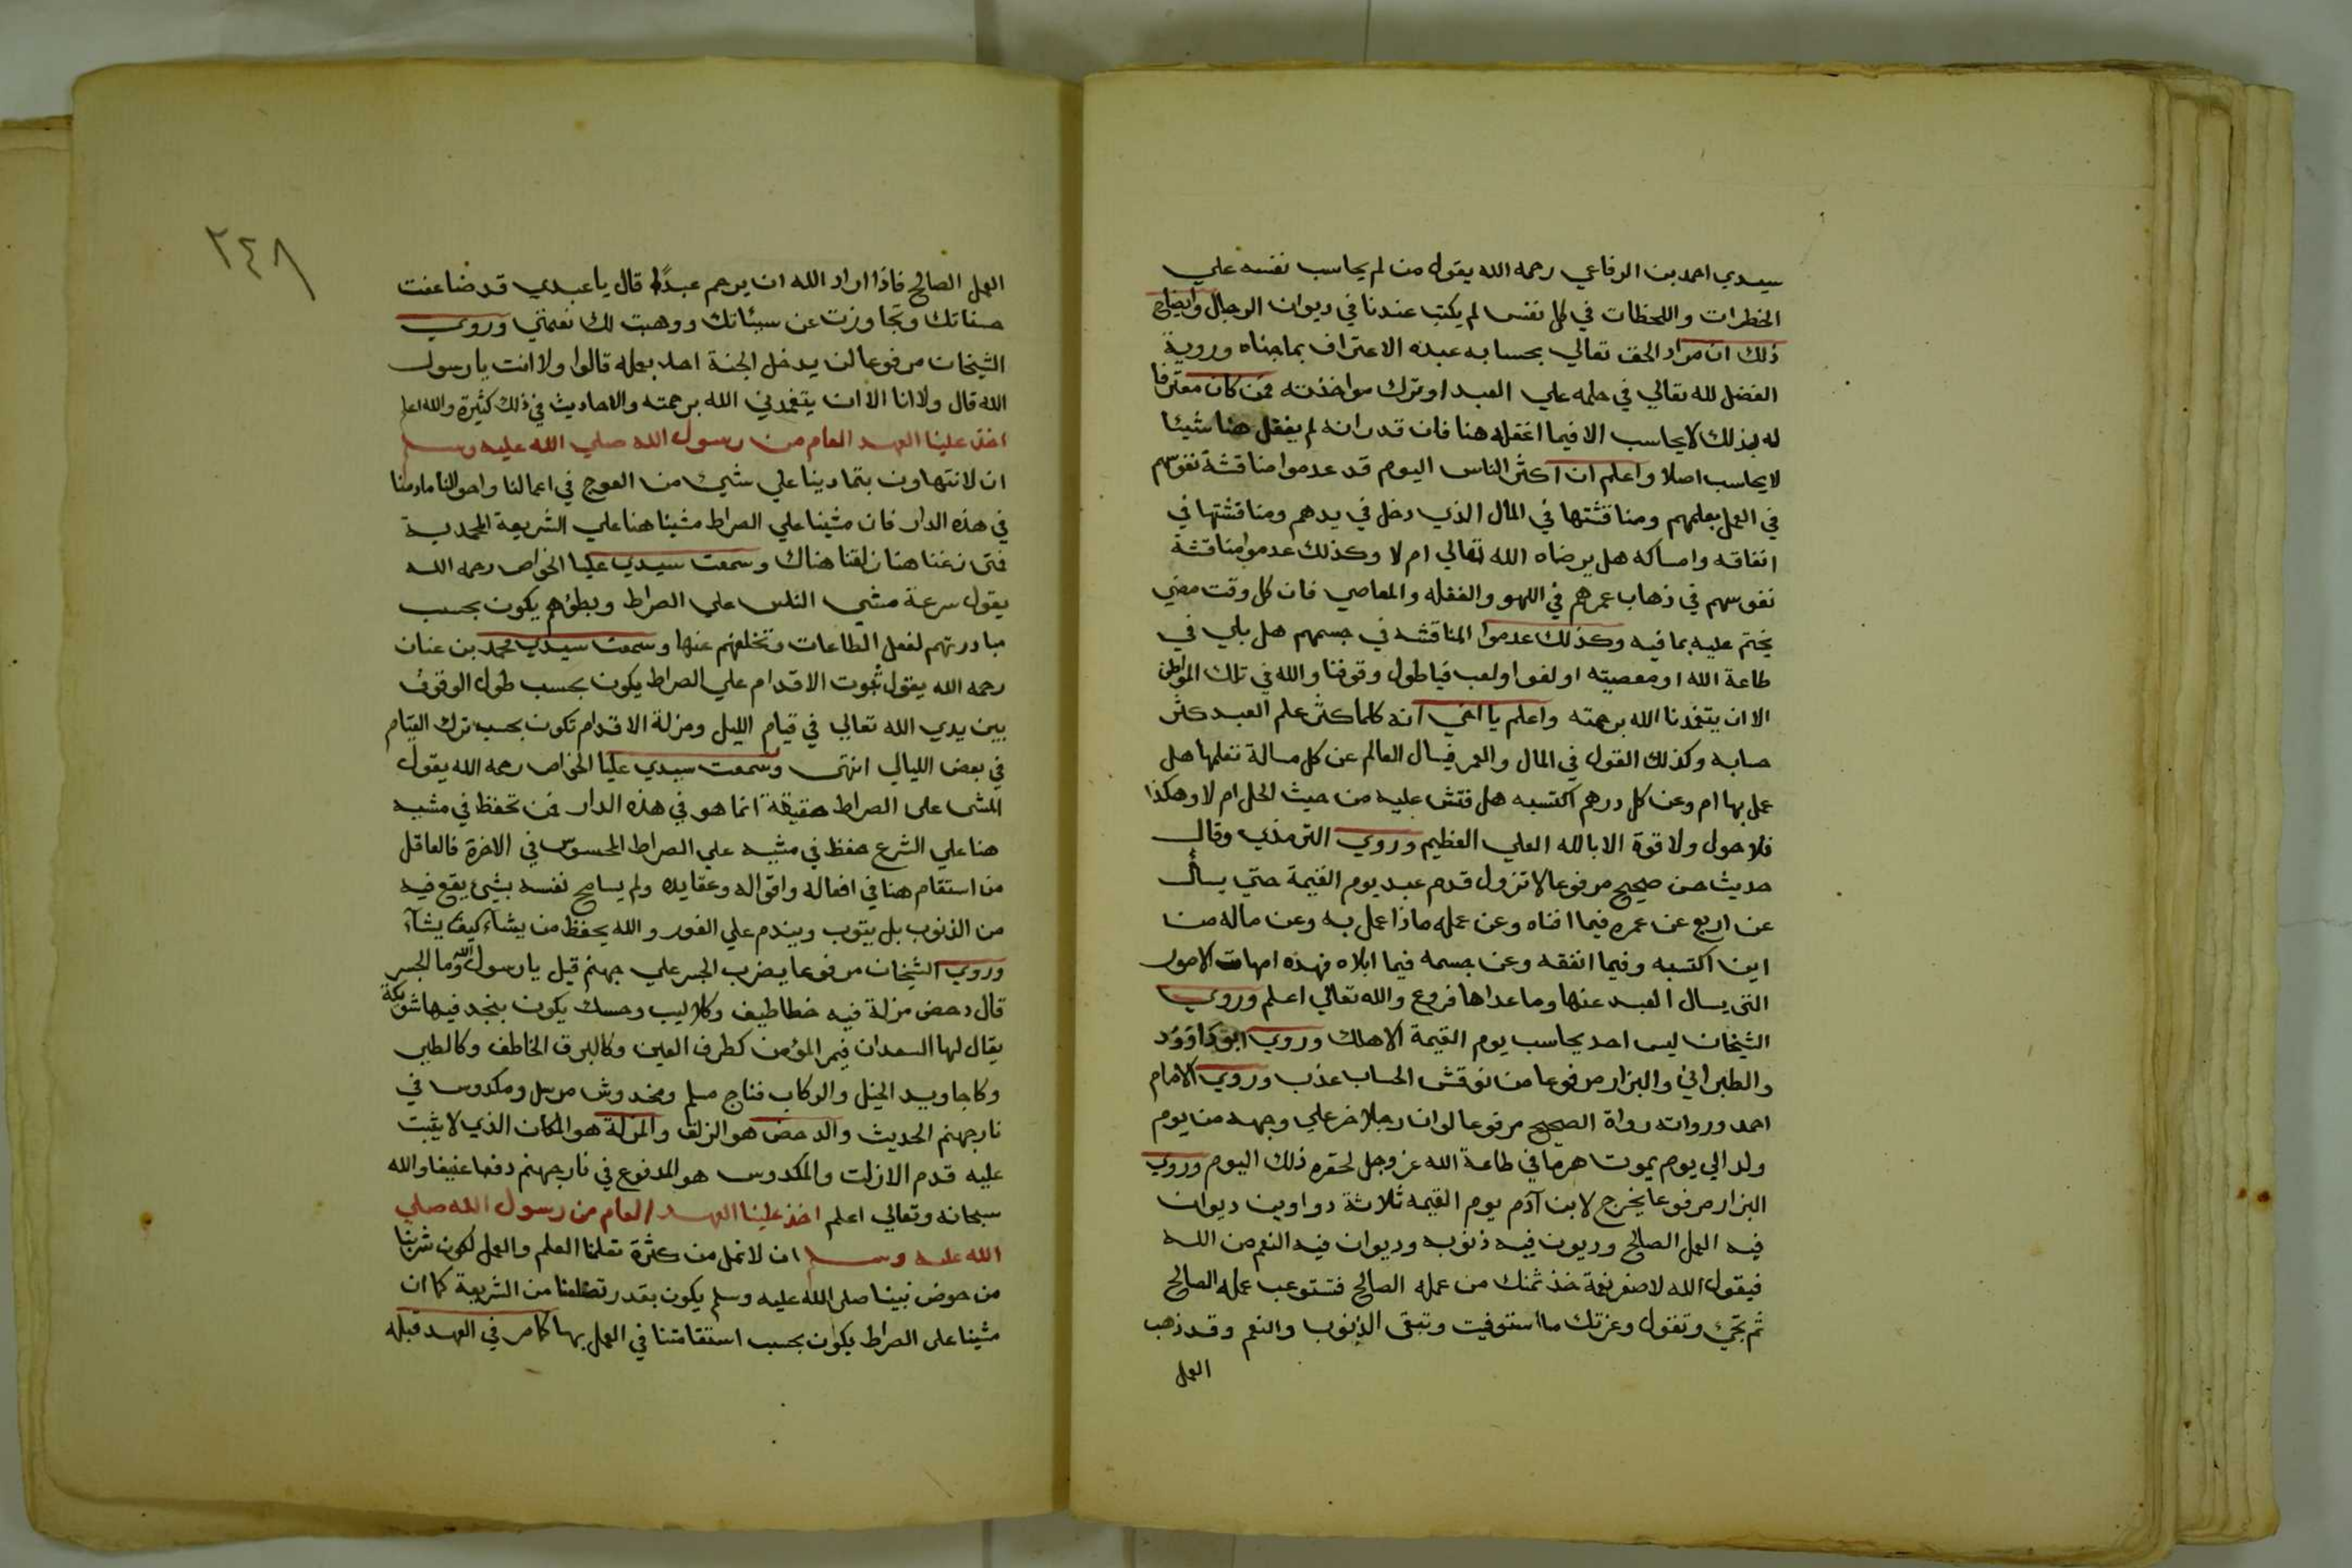 سيدي احمد بن الرفاعي رحمه الله يقول من لم يحاسب نفسه علي
الخطرات واللحظات في كل نفس لم يكتب عندنا في ديوان الرجال وايضاح
ذلك ان مراد الحق تعالي بحسابه عبده الاعتراف بما جناه وروية
الفضل لله تعالي في حلمه علي العبد او ترك مواخذته فمن كان معترفا
له بذلك لا يحاسب الا فيما اغفله هنا فان قدر انه لم يغفل هنا شيئا
لا يحاسب اصلا واعلم ان اكثر الناس اليوم قد عدموا مناقشة نفوسهم
في العمل بعلمهم ومناقشتها في المال الذي دخل في يدهم ومناقشتها في
انفاقه وامساكه هل يرضاه الله تعالي ام لا وكذلك عدموا مناقشة
نفوسهم في ذهاب عمرهم في اللهو والغفله والمعاصي فان كل وقت مضي
يختم عليه بما فيه وكذلك عدموا المناقشه في جسمهم هل بلي في
طاعة الله او معصيته او لغو او لعب فيا طول وقوفنا والله في تلك المواطن
الا ان يتغمدنا الله برحمته واعلم يا اخي انه كلما كثر علم العبد كثر
حسابه وكذلك القول في المال والعمر فيسال العالم عن كل مسالة تعلمها هل
عمل بها ام وعن كل درهم اكتسبه هل فتش عليه من حيث الحل ام لا وهكذا
فلا حول ولا قوة الا بالله العلي العظيم وروي الترمذي وقال
حديث حسن صحيح مرفوعا لا تزول قدم عبد يوم القيمة حتي يسأل
عن اربع عن عمره فيما افناه وعن عمله ماذا عمل به وعن ماله من
اين اكتسبه وفيما انفقه وعن جسمه فيما ابلاه فهذه امهات الامور
التي يسال العبد عنها وما عداها فروع والله تعالي اعلم وروي
الشيخان ليس احد يحاسب يوم القيمة الا هلك وروي ابو داوود
والطبراني والبزار مرفوعا من نوقش الحساب عذب وروي الامام
احمد ورواته رواة الصحيح مرفوعا لو ان رجلا خر علي وجهه من يوم
ولد الي يوم يموت هرما في طاعة الله عز وجل لحقره ذلك اليوم وروي
البزار مرفوعا يخرج لابن آدم يوم القيمه ثلاثة دواوين ديوان
فيه العمل الصالح وديون فيه ذنوبه وديوان فيه النعم من الله
فيقول الله لاصغر نعمة خذ ثمنك من عمله الصالح فتستوعب عمله الصالح
ثم تجئ وتقول وعزتك ما استوفيت وتبقي الذنوب والنعم وقد ذهب
العمل
٢٤٨
العمل الصالح فاذا اراد الله ان يرحم عبدًا قال يا عبدي قد ضاعفت
حسناتك وتجاوزت عن سيئاتك ووهبت لك نعمتي وروي
الشيخان مرفوعا لن يدخل الجنة احد بعمله قالوا ولا انت يا رسول
الله قال ولا انا الا ان يتغمدني الله برحمته والاحاديث في ذلك كثيرة والله اعلم
اخذ علينا العهد العام من رسول الله صلي الله عليه وسلم
ان لا نتهاون بتمادينا علي شيء من العوج في اعمالنا واحوالنا ما دمنا
في هذه الدار فان مشينا علي الصراط مشينا هنا علي الشريعة المحمدية
فمتى زغنا هنا زلقنا هناك وسمعت سيدي عليا الخواص رحمه الله
يقول سرعة مشي الناس علي الصراط وبطؤهم يكون بحسب
مبادرتهم لفعل الطاعات وتخلفهم عنها وسمعت سيدي محمد بن عنان
رحمه الله يقول ثبوت الاقدام علي الصراط يكون بحسب طول الوقوف
بين يدي الله تعالي في قيام الليل ومزلة الاقدام تكون بحسب ترك القيام
في بعض الليالي انتهى وسمعت سيدي عليا الخواص رحمه الله يقول
المشى على الصراط حقيقة انما هو في هذه الدار فمن تحفظ في مشيه
هنا علي الشرع حفظ في مشيه علي الصراط المحسوس في الاخرة فالعاقل
من استقام هنا في افعاله واقواله وعقايده ولم يسامح نفسه بشئ يقع فيه
من الذنوب بل يتوب ويندم علي الفور والله يحفظ من يشاء كيف يشآء
وروي الشيخان مرفوعا يضرب الجسر علي جهنم قيل يا رسول الله وما الجسر
قال دحض مزلة فيه خطاطيف وكلاليب وحسك يكون بنجد فيها شويكة
يقال لها السعدان فيمر المؤمن كطرف العين وكالبرق الخاطف وكالطير
وكاجاويد الخيل والركاب فناج مسلم ومخدوش مرسل ومكدوس في
نار جهنم الحديث والدحض هو الزلق والمزلة هو المكان الذي لا يثبت
عليه قدم الا زلت والمكدوس هو المدفوع في نار جهنم دفعا عنيفا والله
سبحانه وتعالي اعلم اخذ علينا العهد العام من رسول الله صلي
الله عليه وسلم ان لا نمل من كثرة تعلمنا العلم والعمل لكون شربنا
من حوض نبينا صلى الله عليه وسلم يكون بقدر تضلعنا من الشريعة كما ان
مشينا على الصراط يكون بحسب استقامتنا في العمل بها كما مر في العهد قبله